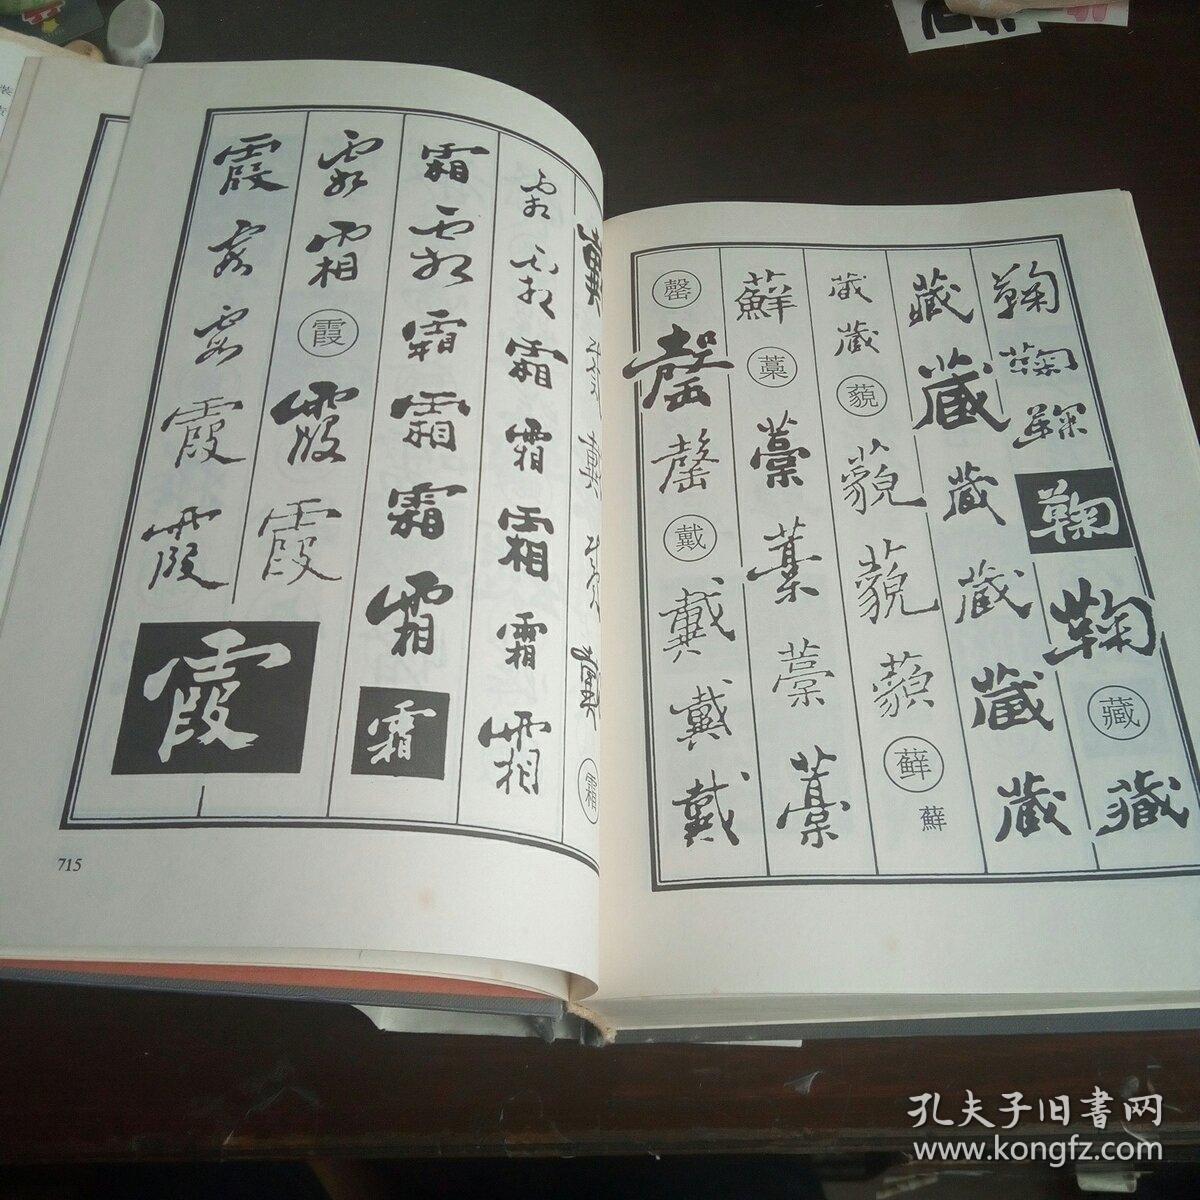 鞠鞠鞠鞠鞠藏藏
藏藏藏藏藏藏
藏藏藐藐藐藐蘚蘚
蘚藁藁藁藁藁
罄罄罄戴戴戴戴
霜
霜霜霜霜霜霜霜
霜霜霜霜霜霜霜
霜霜霞霞霞
霞霞霞霞霞霞
715
孔夫子旧书网
www.kongfz.com